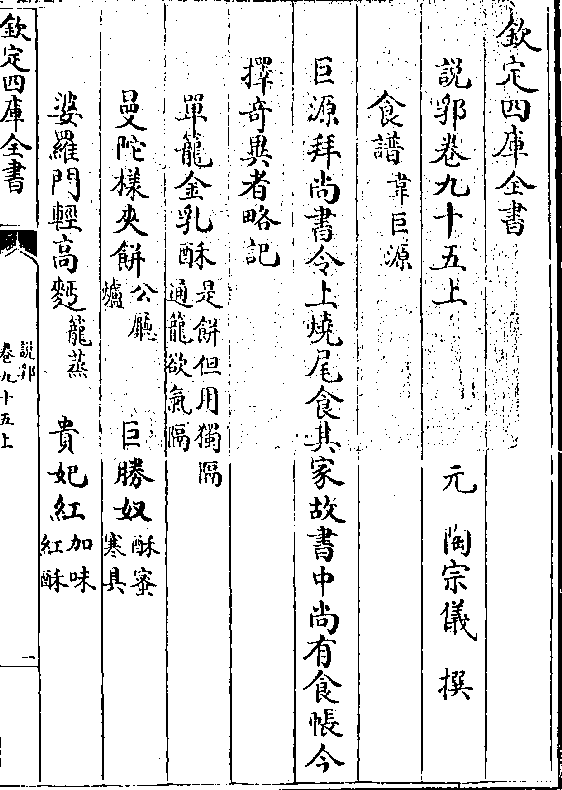 欽定四庫全書
說郛卷九十五上
元 陶宗儀 撰
食譜 韋巨源
巨源拜尚書令上燒尾食其家故書中尚有食帳今
擇奇異者略記
單籠金乳酥 是餅但用獨隔通籠欲氣隔
曼陀樣夾餅 公廳爐 巨勝奴 酥蜜寒具
婆羅門輕高麪 籠蒸 貴妃紅 加味紅酥
欽定四庫全書
說郛
卷九十五上
一